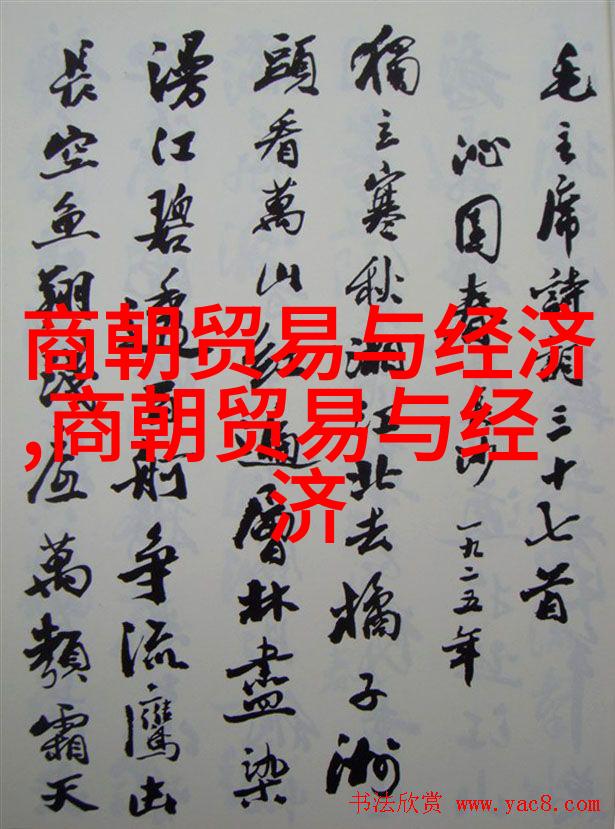 毛主席詩詞三十七首
沁园春 長沙 一九二五年
獨立寒秋湘江北去橘子洲
頭看萬山红遍層林盡染
漫江碧透百舸争流鷹击
長空鱼翔淺底萬類霜天
商朝贸易与经济
,商朝贸易与经
济
书法欣赏 www.yac8.com